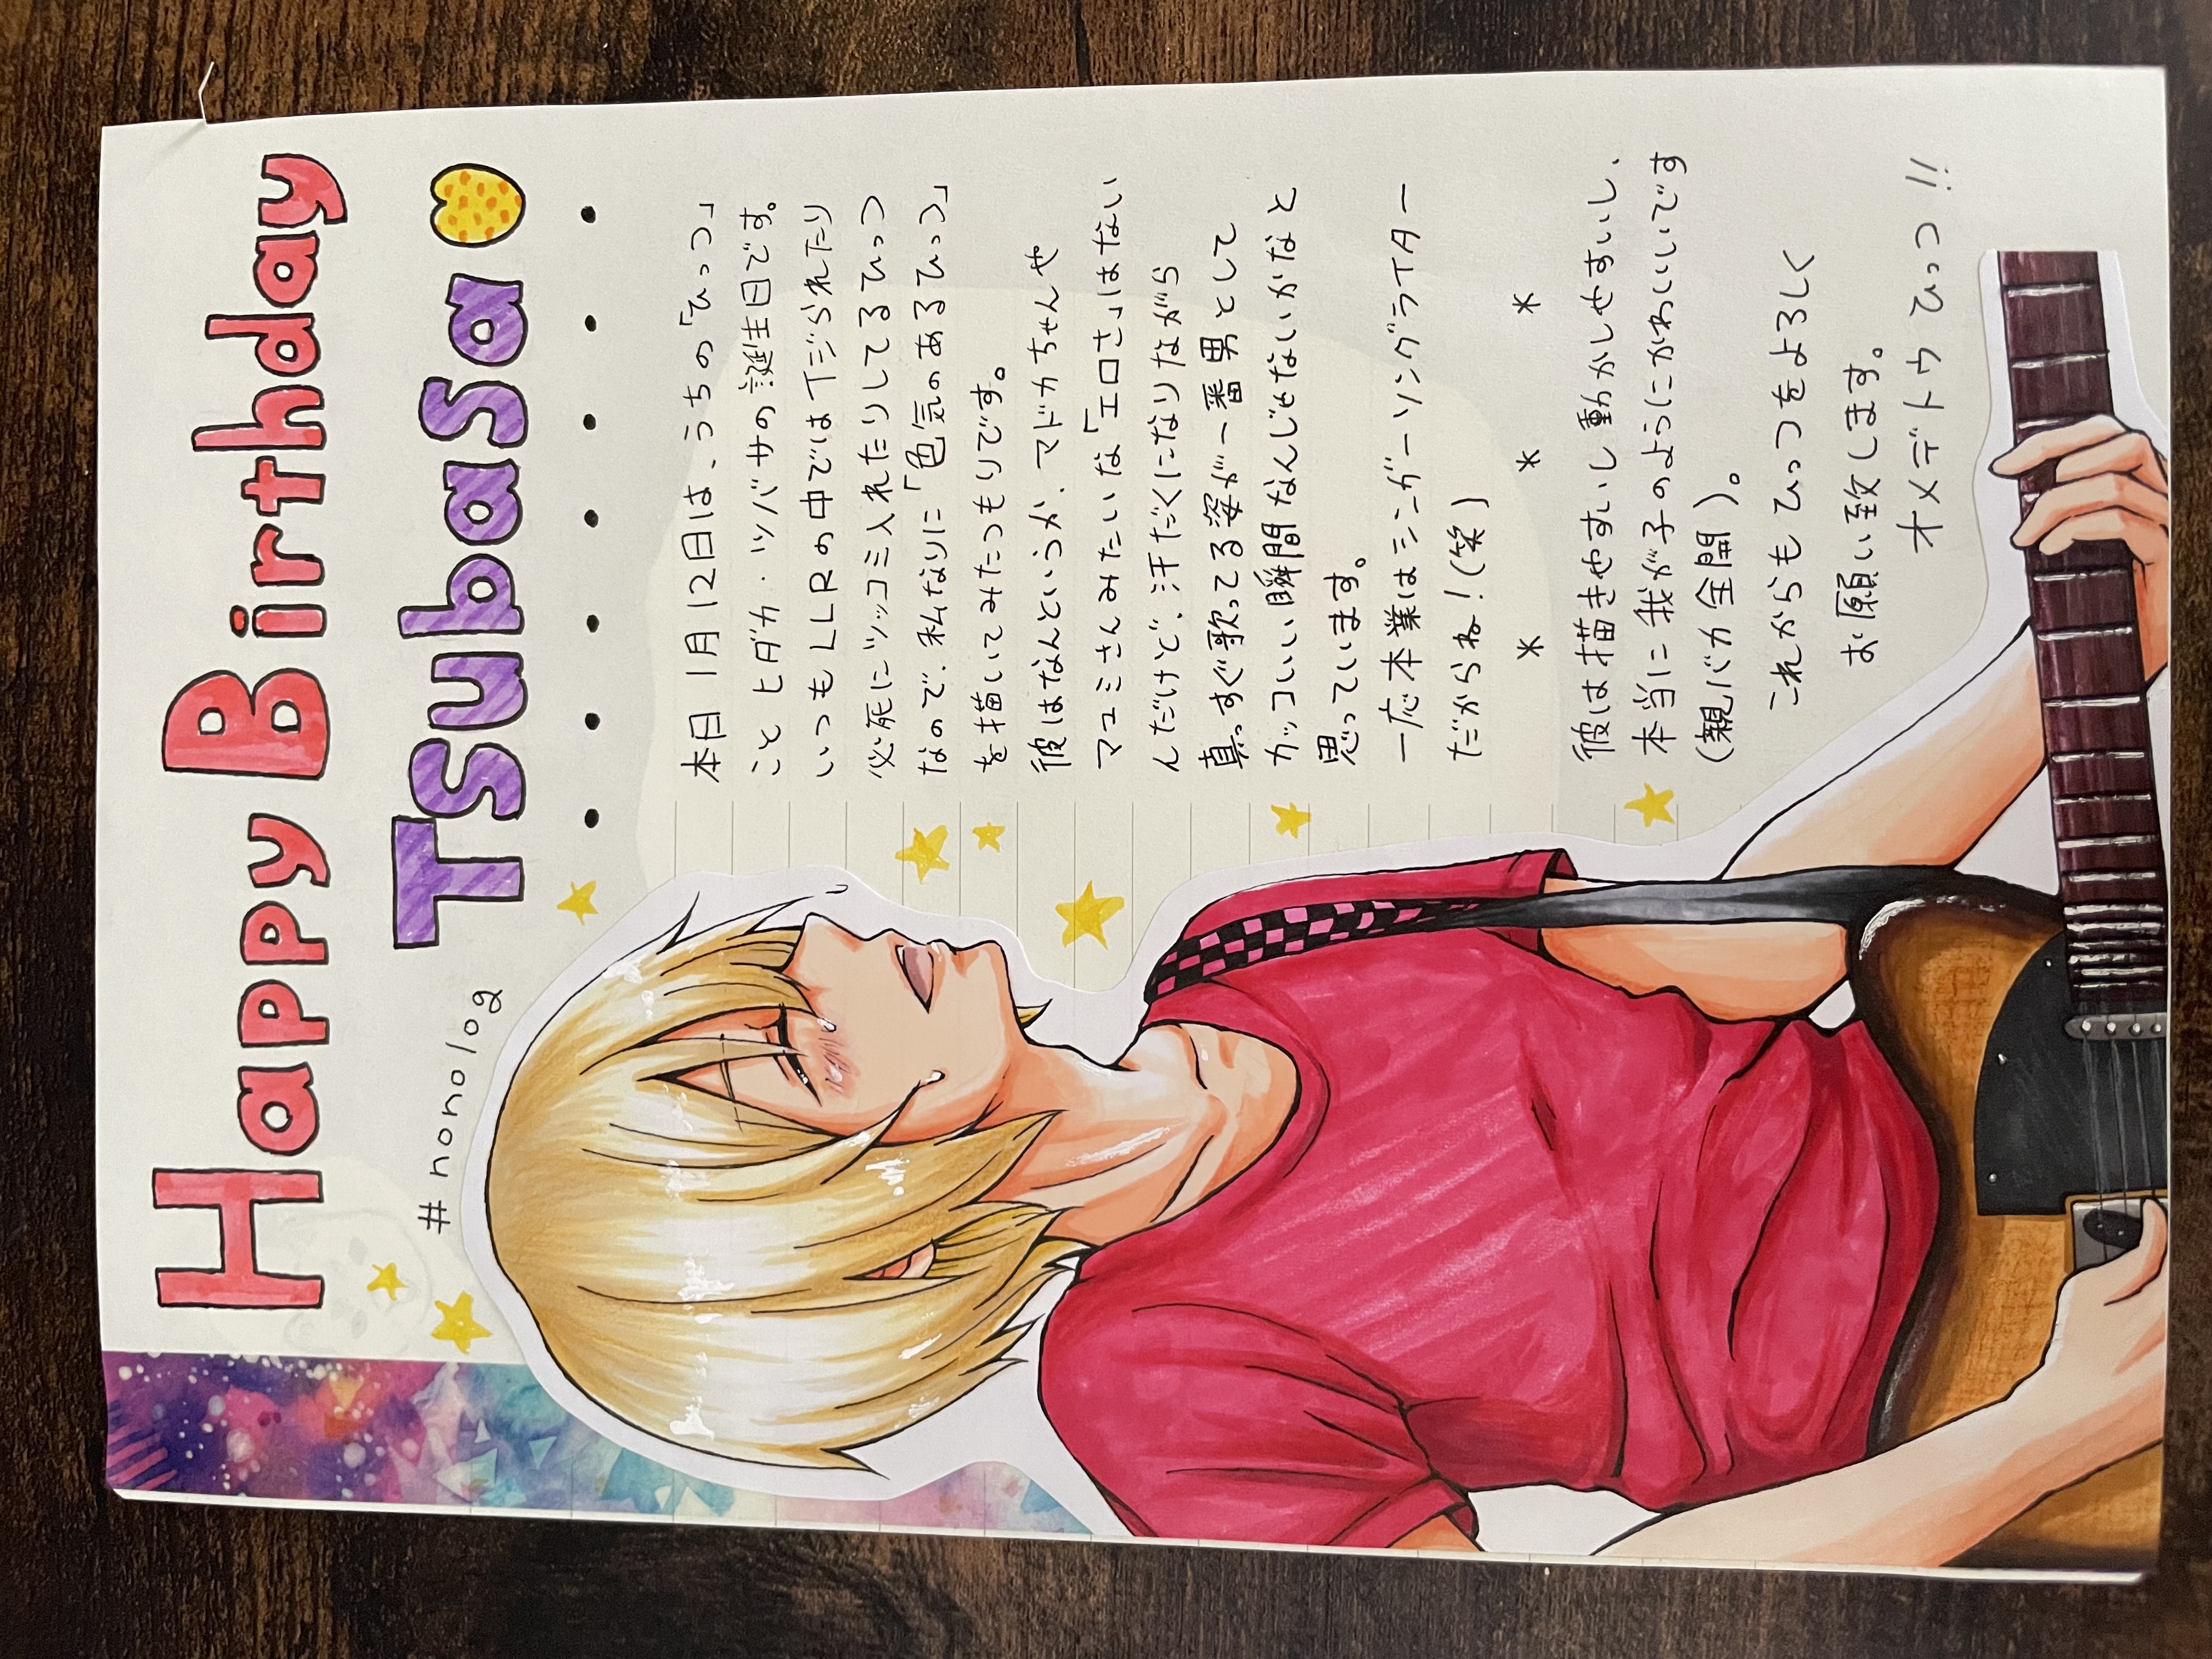 Happy Birthday
Tsubasa
#nonolog
本日1月12日は、うちの「ひっつ」
こと ヒダカ・ツバサの誕生日です。
いつもLLRの中では下じられたり
必死にツッコミ入れたりしてるひっつ
なので、私なりに「色気のあるひっつ」
を描いてみたつもりです。
彼はなんというか、マドカちゃんや
マユミさんみたいな「エロさ」はない
んだけど、汗だくになりながら
真っすぐ歌ってる姿が一番男として
カッコいい瞬間なんじゃないかなと
思っています。
一応本業はシンガーソングライター
だからね!(笑)
* * *
彼は描きやすいし動かしやすいし、
本当に我が子のようにかわいいです
(親バカ全開)。
これからもひっつをよろしく
お願い致します。
オメデトウひっつ!!